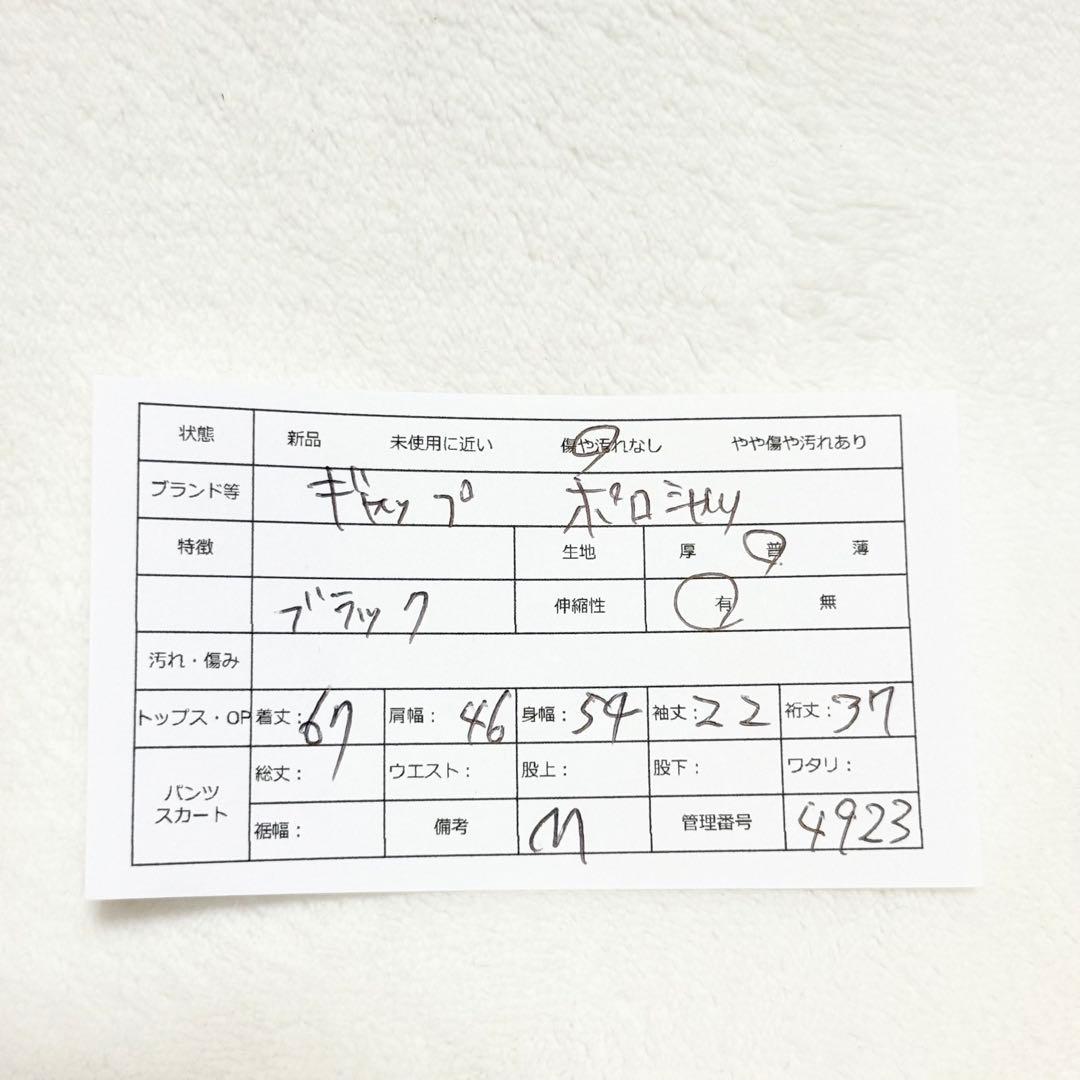 状態 新品 未使用に近い 傷や汚れなし やや傷や汚れあり
ブランド等 ギャップ ポロシャツ
特徴 生地 厚 普 薄
ブラック 伸縮性 有 無
汚れ・傷み
トップス・OP 着丈：67 肩幅：46 身幅：54 袖丈：22 裄丈：37
パンツ スカート 総丈： ウエスト： 股上： 股下： ワタリ：
裾幅： 備考 M 管理番号 4923